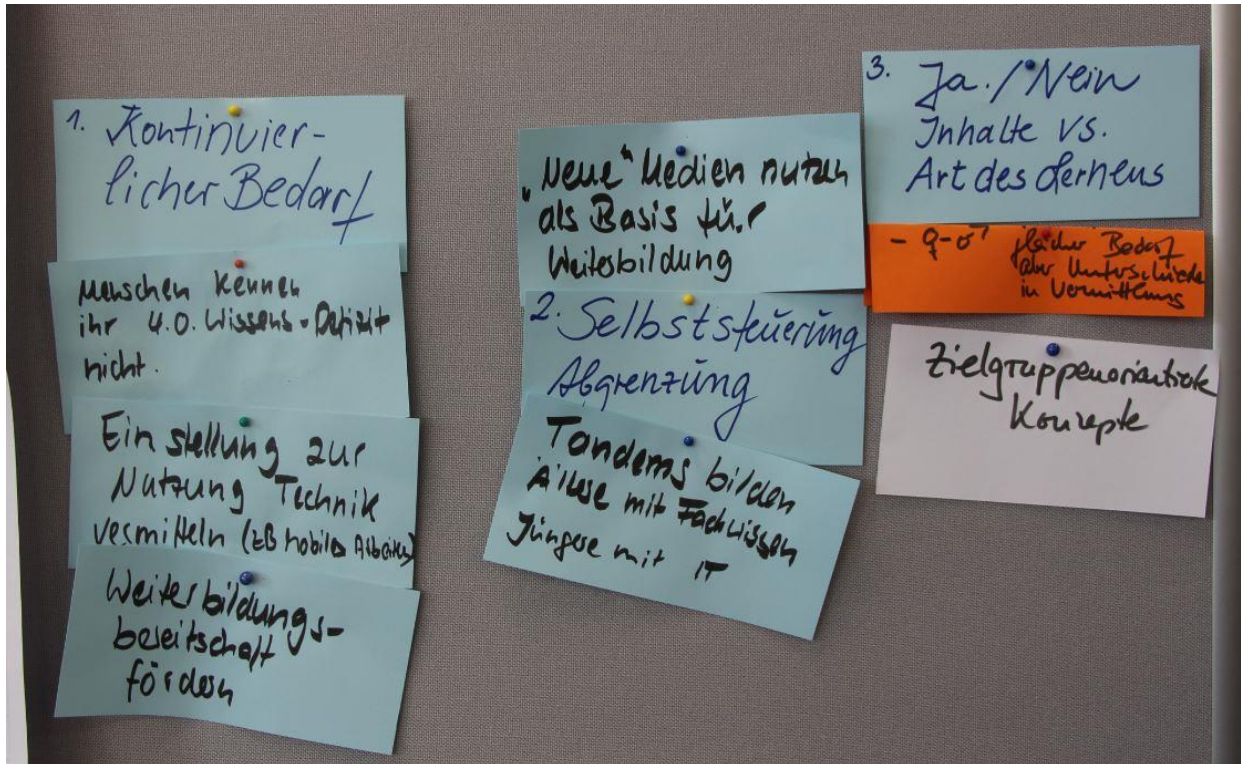 1. Kontinuier-
licher Bedarf
Menschen kennen
ihr 4.0. Wissens-Defizit
nicht.
Einstellung zur
Nutzung Technik
vermitteln (zB mobiles Arbeiten)
Weiterbildungs-
bereitschaft
fördern
„Neue“ Medien nutzen
als Basis für
Weiterbildung
2. Selbststeuerung
Abgrenzung
Tandems bilden
Ältere mit Fachwissen
Jüngere mit IT
3. Ja./Nein
Inhalte vs.
Art des Lernens
- ♀-♂ gleicher Bedarf
aber Unterschiede
in Vermittlung
Zielgruppenorientierte
Konzepte